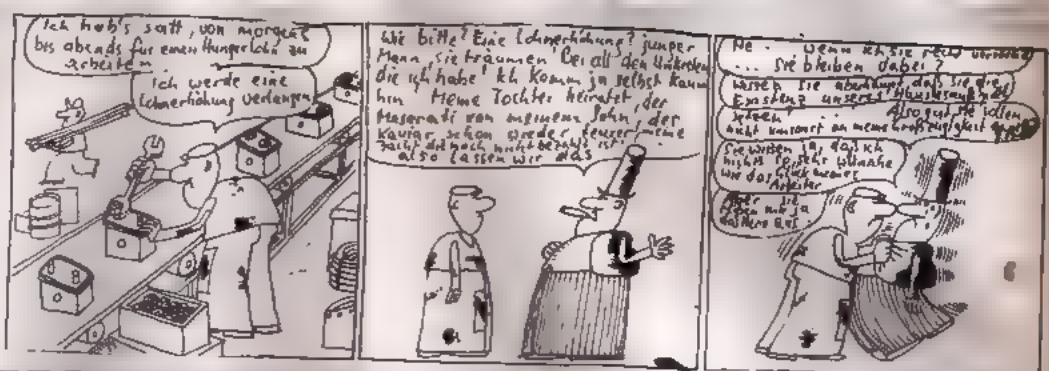 Ich hab's satt, von morgens
bis abends für einen Hungerlohn zu
arbeiten
ich werde eine
Lohnerhöhung verlangen
Wie bitte? Eine Lohnerhöhung? junger
Mann, sie träumen Bei all den Unkosten
die ich habe! Ich komm ja selbst kaum
hin Meine Tochter heiratet, der
Maserati von meinem Sohn, der
Kaviar schon wieder teurer, meine
Jacht die noch nicht bezahlt ist
also lassen wir das
Ne .. wenn ich sie recht
... Sie bleiben dabei?
wissen sie überhaupt, daß sie die
Existenz unseres Hauses
setzen? .. Also gut sie sollen
nicht umsonst an meine Großzügigkeit
Sie wissen ja, daß ich
nichts so sehr wünsche
wie das Glück meiner
Arbeiter
Aber sie
ja